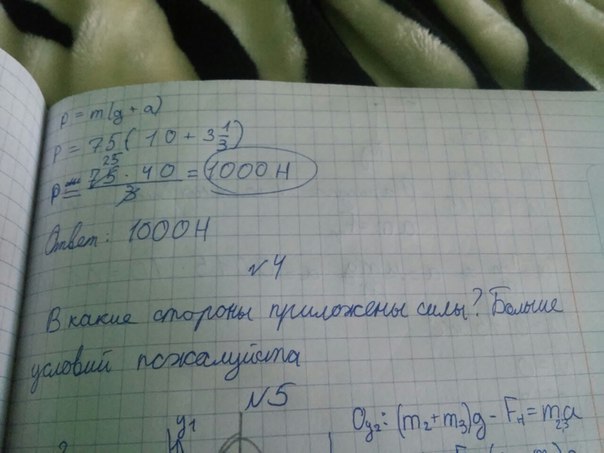 P = m(g + a)
P = 75(10 + 3 1/3)
25
P = 75 · 40 / 3 = 1000 Н
Ответ: 1000Н
№4
В какие стороны приложены силы? Больше
условий пожалуйста
№5
y1
Oy2: (m2+m3)g - Fн = m23a